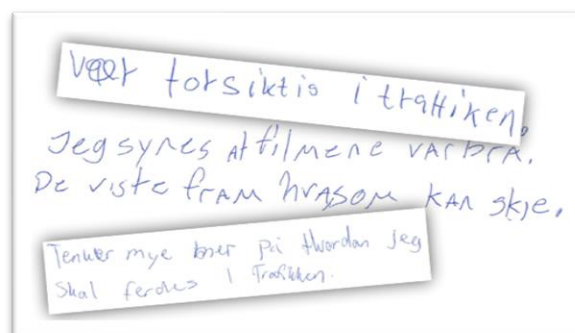 Vær forsiktig i traffiken.
Jeg synes at filmene var bra.
De viste fram hva som kan skje.
Tenker mye mer på Hvordan jeg
Skal ferdes i Trafikken.